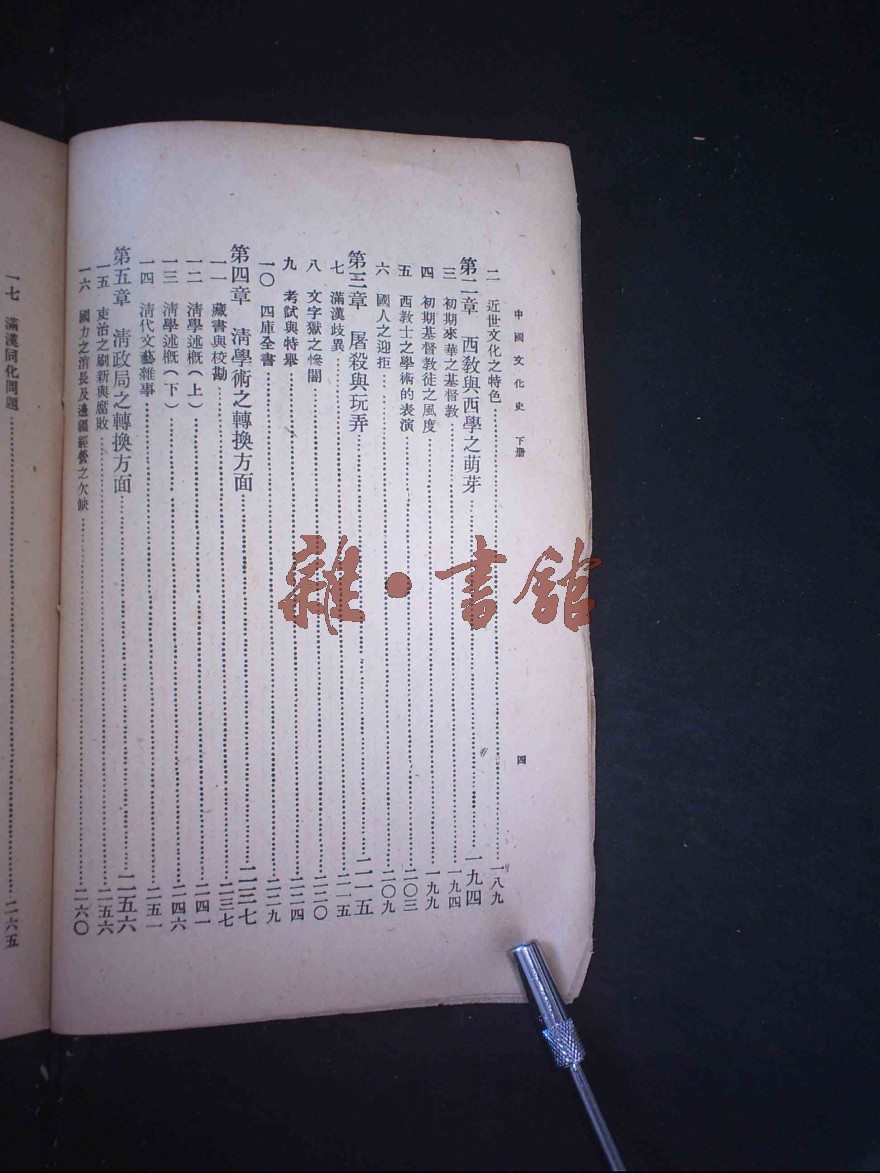 中國文化史 下册 四
二 近世文化之特色 一八九
第二章 西教與西學之萌芽 一九四
三 初期來華之基督教 一九四
四 初期基督教徒之風度 一九九
五 西教士之學術的表演 二〇三
六 國人之迎拒 二〇九
第三章 屠殺與玩弄 二一五
七 滿漢歧異 二一五
八 文字獄之慘闇 二二〇
九 考試與特舉 二二四
一〇 四庫全書 二二九
第四章 清學術之轉換方面 二三七
一一 藏書與校勘 二三七
一二 清學述概(上) 二四一
一三 清學述概(下) 二四六
一四 清代文藝雜事 二五一
第五章 清政局之轉換方面 二五六
一五 吏治之刷新與腐敗 二五六
一六 國力之消長及邊疆經營之欠缺 二六〇
一七 滿漢同化問題 二六五
雜·書館